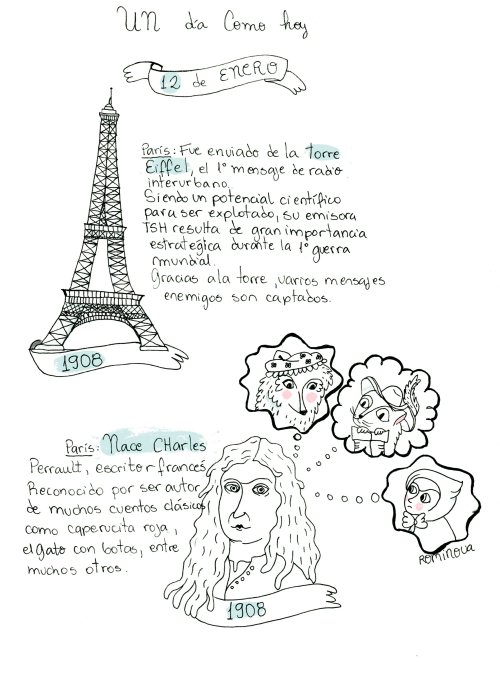 UN día Como hoy
12 de ENERO
París: Fue enviado de la torre
Eiffel, el 1° mensaje de radio
interurbano.
Siendo un potencial científico
para ser explotado, su emisora
TSH resulta de gran importancia
estrategica durante la 1° guerra
mundial.
Gracias a la torre, varios mensajes
enemigos son captados.
1908
París: Nace CHarles
Perrault, escritor francés
Reconocido por ser autor
de muchos cuentos clásicos
como caperucita roja,
el gato con botas, entre
muchos otros.
1908
ROMINOVA